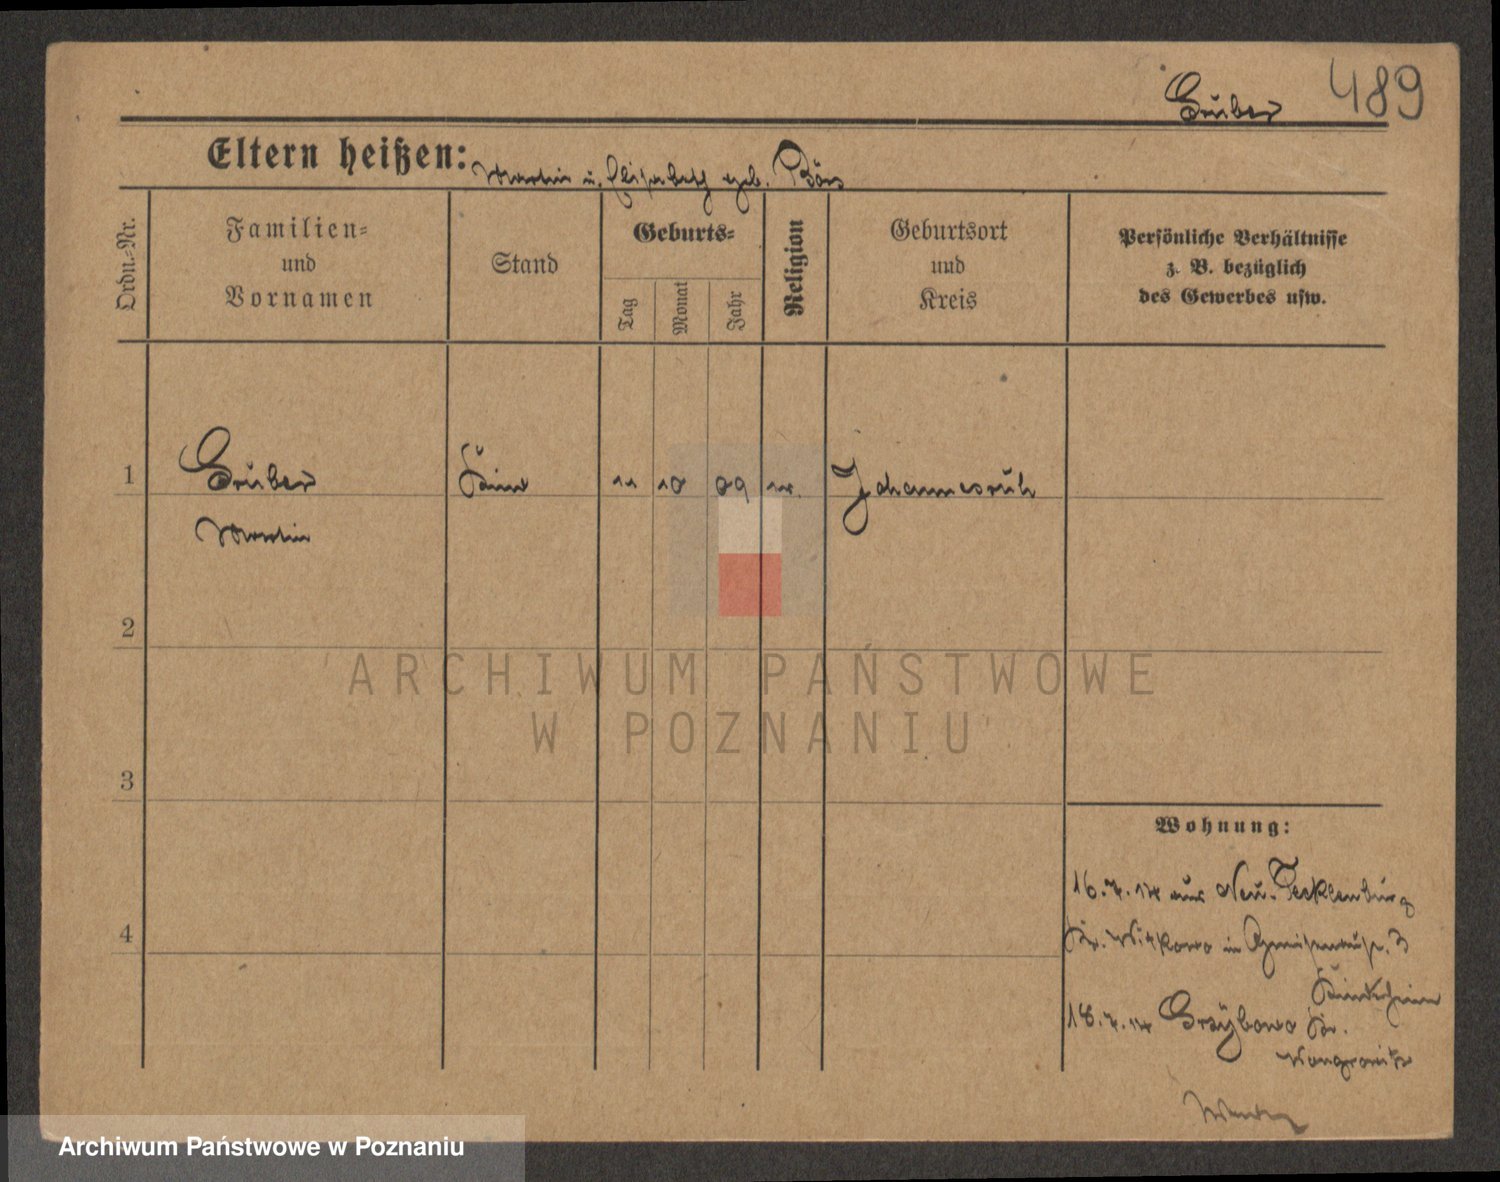 489
Gruber
Eltern heißen: Martin u. Elisabeth geb.
Ordn.-Nr.
Familien- und Vornamen
Stand
Geburts-
Tag
Monat
Jahr
Religion
Geburtsort und Kreis
Persönliche Verhältnisse
z. B. bezüglich
des Gewerbes usw.
1
Gruber
11 10 09
Johannesruh
Martin
2
ARCHIWUM PAŃSTWOWE
W POZNANIU
3
Wohnung:
16.7.14 aus Neu-Tecklenburg
Kr. Witkowo in Gneisenaustr. 3
Kinderheim
18.7.14 Grzybowo Kr.
Wongrowitz
4
Archiwum Państwowe w Poznaniu